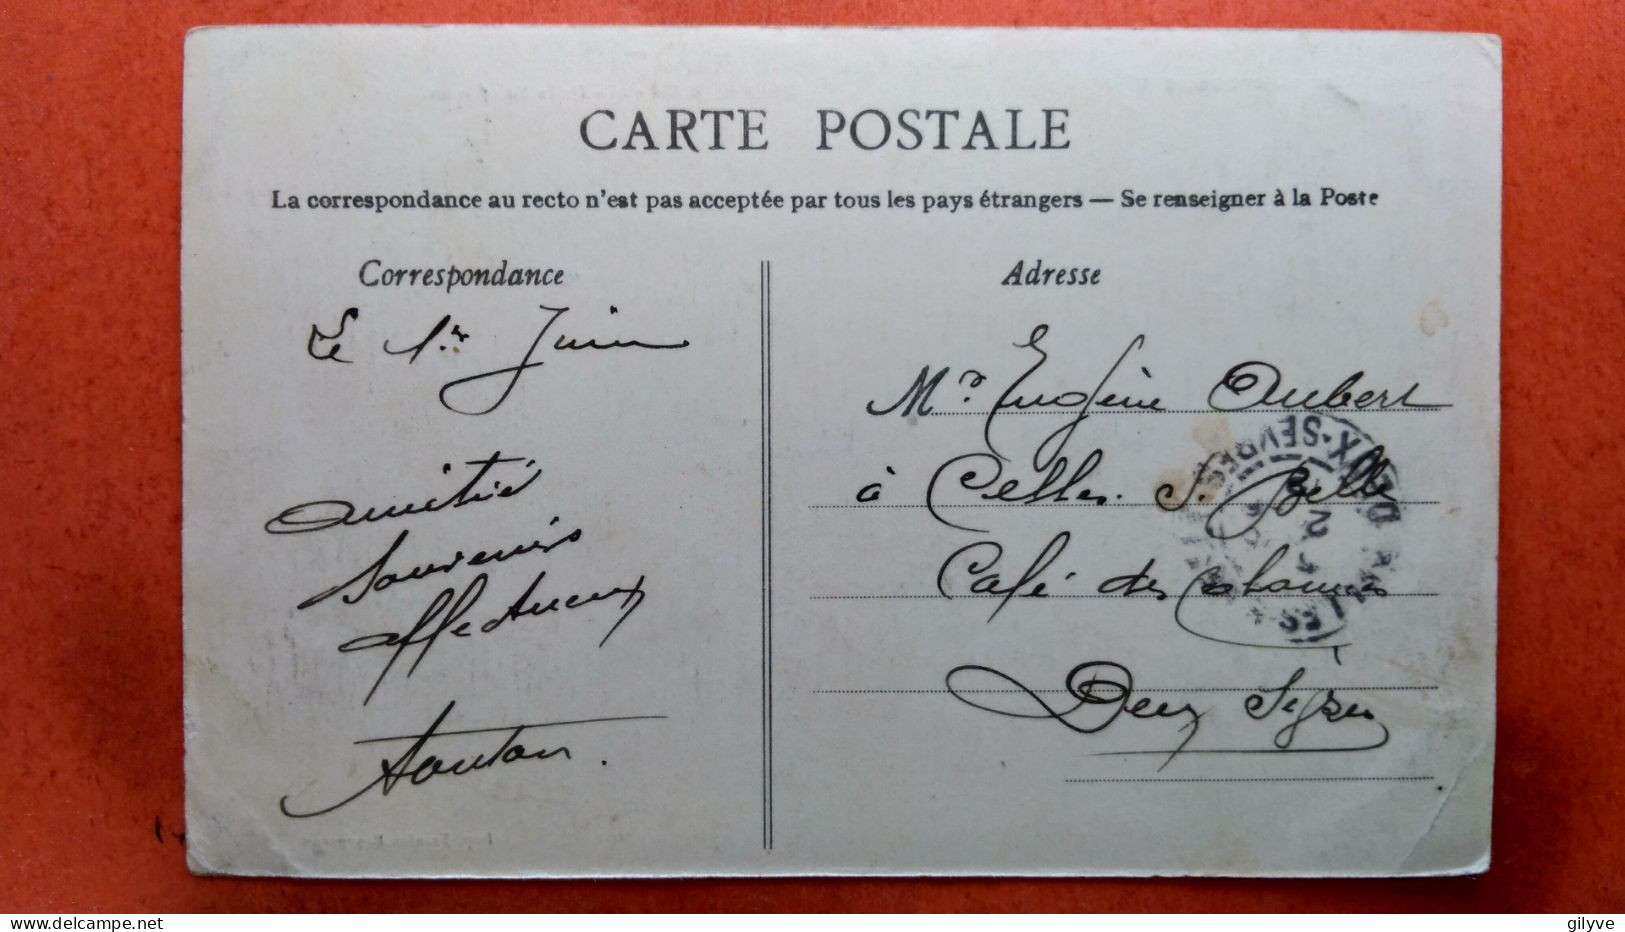 CARTE POSTALE
La correspondance au recto n'est pas acceptée par tous les pays étrangers — Se renseigner à la Poste
Correspondance
Le 1.er Juin
Amitié
Souvenirs
affectueux
Adresse
Mr. Eugène Aubert
à Celles. S. Belle
Café des
Deux Sèvres
DEUX-SÈVRES
Delcampe.net
gilyve